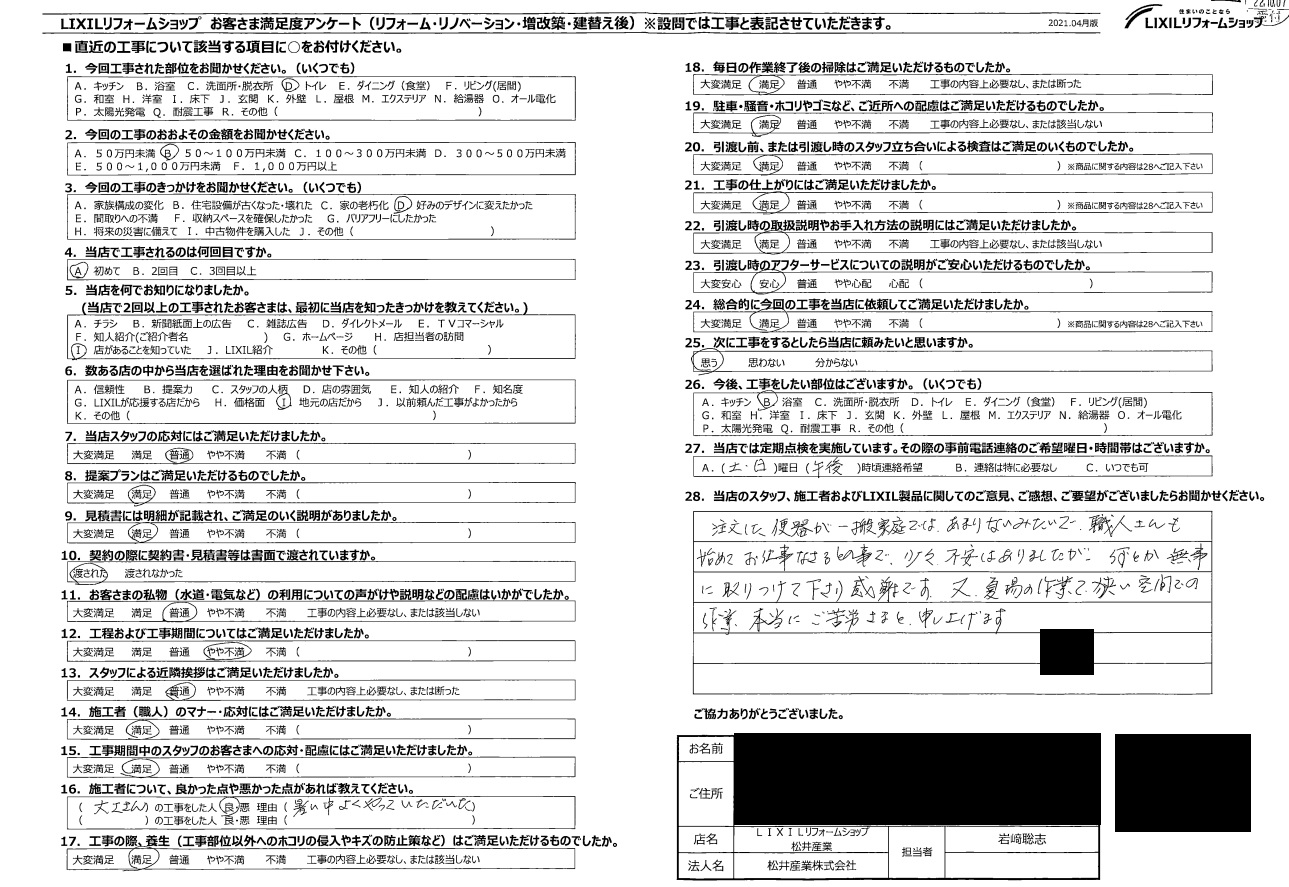 LIXILリフォームショップ お客さま満足度アンケート（リフォーム・リノベーション・増改築・建替え後）※設問では工事と表記させていただきます。
2021.04月版
住まいのことなら
LIXILリフォームショップ
22.10.07
受付
■直近の工事について該当する項目に○をお付けください。
1．今回工事された部位をお聞かせください。（いくつでも）
A．キッチン B．浴室 C．洗面所・脱衣所 D．トイレ E．ダイニング（食堂） F．リビング(居間)
G．和室 H．洋室 I．床下 J．玄関 K．外壁 L．屋根 M．エクステリア N．給湯器 O．オール電化
P．太陽光発電 Q．耐震工事 R．その他（ ）
2．今回の工事のおおよその金額をお聞かせください。
A．５０万円未満 B．５０～１００万円未満 C．１００～３００万円未満 D．３００～５００万円未満
E．５００～１,０００万円未満 F．１,０００万円以上
3．今回の工事のきっかけをお聞かせください。（いくつでも）
A．家族構成の変化 B．住宅設備が古くなった・壊れた C．家の老朽化 D．好みのデザインに変えたかった
E．間取りへの不満 F．収納スペースを確保したかった G．バリアフリーにしたかった
H．将来の災害に備えて I．中古物件を購入した J．その他（ ）
4．当店で工事されるのは何回目ですか。
A．初めて B．2回目 C．3回目以上
5．当店を何でお知りになりましたか。
（当店で2回以上の工事されたお客さまは、最初に当店を知ったきっかけを教えてください。）
A．チラシ B．新聞紙面上の広告 C．雑誌広告 D．ダイレクトメール E．ＴＶコマーシャル
F．知人紹介(ご紹介者名 ) G．ホームページ H．店担当者の訪問
I．店があることを知っていた J．LIXIL紹介 K．その他（ ）
6．数ある店の中から当店を選ばれた理由をお聞かせ下さい。
A．信頼性 B．提案力 C．スタッフの人柄 D．店の雰囲気 E．知人の紹介 F．知名度
G．LIXILが応援する店だから H．価格面 I．地元の店だから J．以前頼んだ工事がよかったから
K．その他（ ）
7．当店スタッフの応対にはご満足いただけましたか。
大変満足 満足 普通 やや不満 不満（ ）
8．提案プランはご満足いただけるものでしたか。
大変満足 満足 普通 やや不満 不満（ ）
9．見積書には明細が記載され、ご満足のいく説明がありましたか。
大変満足 満足 普通 やや不満 不満（ ）
10．契約の際に契約書・見積書等は書面で渡されていますか。
渡された 渡されなかった
11．お客さまの私物（水道・電気など）の利用についての声がけや説明などの配慮はいかがでしたか。
大変満足 満足 普通 やや不満 不満 工事の内容上必要なし、または該当しない
12．工程および工事期間についてはご満足いただけましたか。
大変満足 満足 普通 やや不満 不満（ ）
13．スタッフによる近隣挨拶はご満足いただけましたか。
大変満足 満足 普通 やや不満 不満 工事の内容上必要なし、または断った
14．施工者（職人）のマナー・応対にはご満足いただけましたか。
大変満足 満足 普通 やや不満 不満（ ）
15．工事期間中のスタッフのお客さまへの応対・配慮にはご満足いただけましたか。
大変満足 満足 普通 やや不満 不満（ ）
16．施工者について、良かった点や悪かった点があれば教えてください。
（ 大工さん ）の工事をした人 良・悪 理由（ 暑い中よくやっていただいた ）
（ ）の工事をした人 良・悪 理由（ ）
17．工事の際、養生（工事部位以外へのホコリの侵入やキズの防止策など）はご満足いただけるものでしたか。
大変満足 満足 普通 やや不満 不満 工事の内容上必要なし、または該当しない
18．毎日の作業終了後の掃除はご満足いただけるものでしたか。
大変満足 満足 普通 やや不満 不満 工事の内容上必要なし、または断った
19．駐車・騒音・ホコリやゴミなど、ご近所への配慮はご満足いただけるものでしたか。
大変満足 満足 普通 やや不満 不満 工事の内容上必要なし、または該当しない
20．引渡し前、または引渡し時のスタッフ立ち合いによる検査はご満足のいくものでしたか。
大変満足 満足 普通 やや不満 不満（ ）※商品に関する内容は28へご記入下さい
21．工事の仕上がりにはご満足いただけましたか。
大変満足 満足 普通 やや不満 不満（ ）※商品に関する内容は28へご記入下さい
22．引渡し時の取扱説明やお手入れ方法の説明にはご満足いただけましたか。
大変満足 満足 普通 やや不満 不満 工事の内容上必要なし、または該当しない
23．引渡し時のアフターサービスについての説明がご安心いただけるものでしたか。
大変安心 安心 普通 やや心配 心配（ ）
24．総合的に今回の工事を当店に依頼してご満足いただけましたか。
大変満足 満足 普通 やや不満 不満（ ）※商品に関する内容は28へご記入下さい
25．次に工事をするとしたら当店に頼みたいと思いますか。
思う 思わない 分からない
26．今後、工事をしたい部位はございますか。（いくつでも）
A．キッチン B．浴室 C．洗面所・脱衣所 D．トイレ E．ダイニング（食堂） F．リビング(居間)
G．和室 H．洋室 I．床下 J．玄関 K．外壁 L．屋根 M．エクステリア N．給湯器 O．オール電化
P．太陽光発電 Q．耐震工事 R．その他（ ）
27．当店では定期点検を実施しています。その際の事前電話連絡のご希望曜日・時間帯はございますか。
A．（土・日）曜日（午後 ）時頃連絡希望 B．連絡は特に必要なし C．いつでも可
28．当店のスタッフ、施工者およびLIXIL製品に関してのご意見、ご感想、ご要望がございましたらお聞かせください。
注文した便器が一搬家庭では、あまりないみたいで、職人さんも
始めてお仕事なさるとの事で、少々不安はありましたが、何とか無事
に取りつけて下さり感謝です。又、夏場の作業で狭い空間での
作業、本当にご苦労さまと、申し上げます
ご協力ありがとうございました。
お名前
ご住所
店名 ＬＩＸＩＬリフォームショップ 松井産業 担当者 岩﨑聡志
法人名 松井産業株式会社